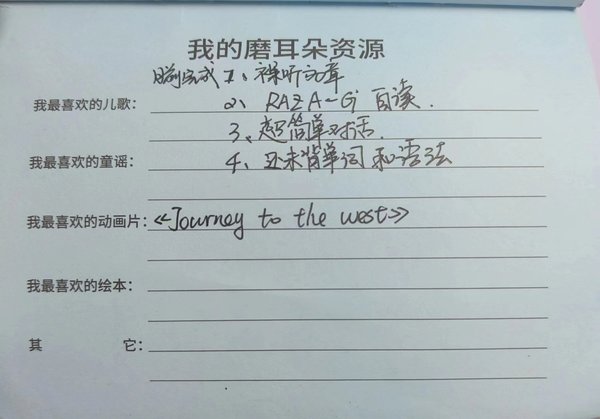 我的磨耳朵资源
目前完成 1、裸听文章
我最喜欢的儿歌: 2、RAZ A-G 自读.
3、超简单对话.
我最喜欢的童谣: 4、还未背单词和语法
我最喜欢的动画片: 《Journey to the west》
我最喜欢的绘本:
其 它: